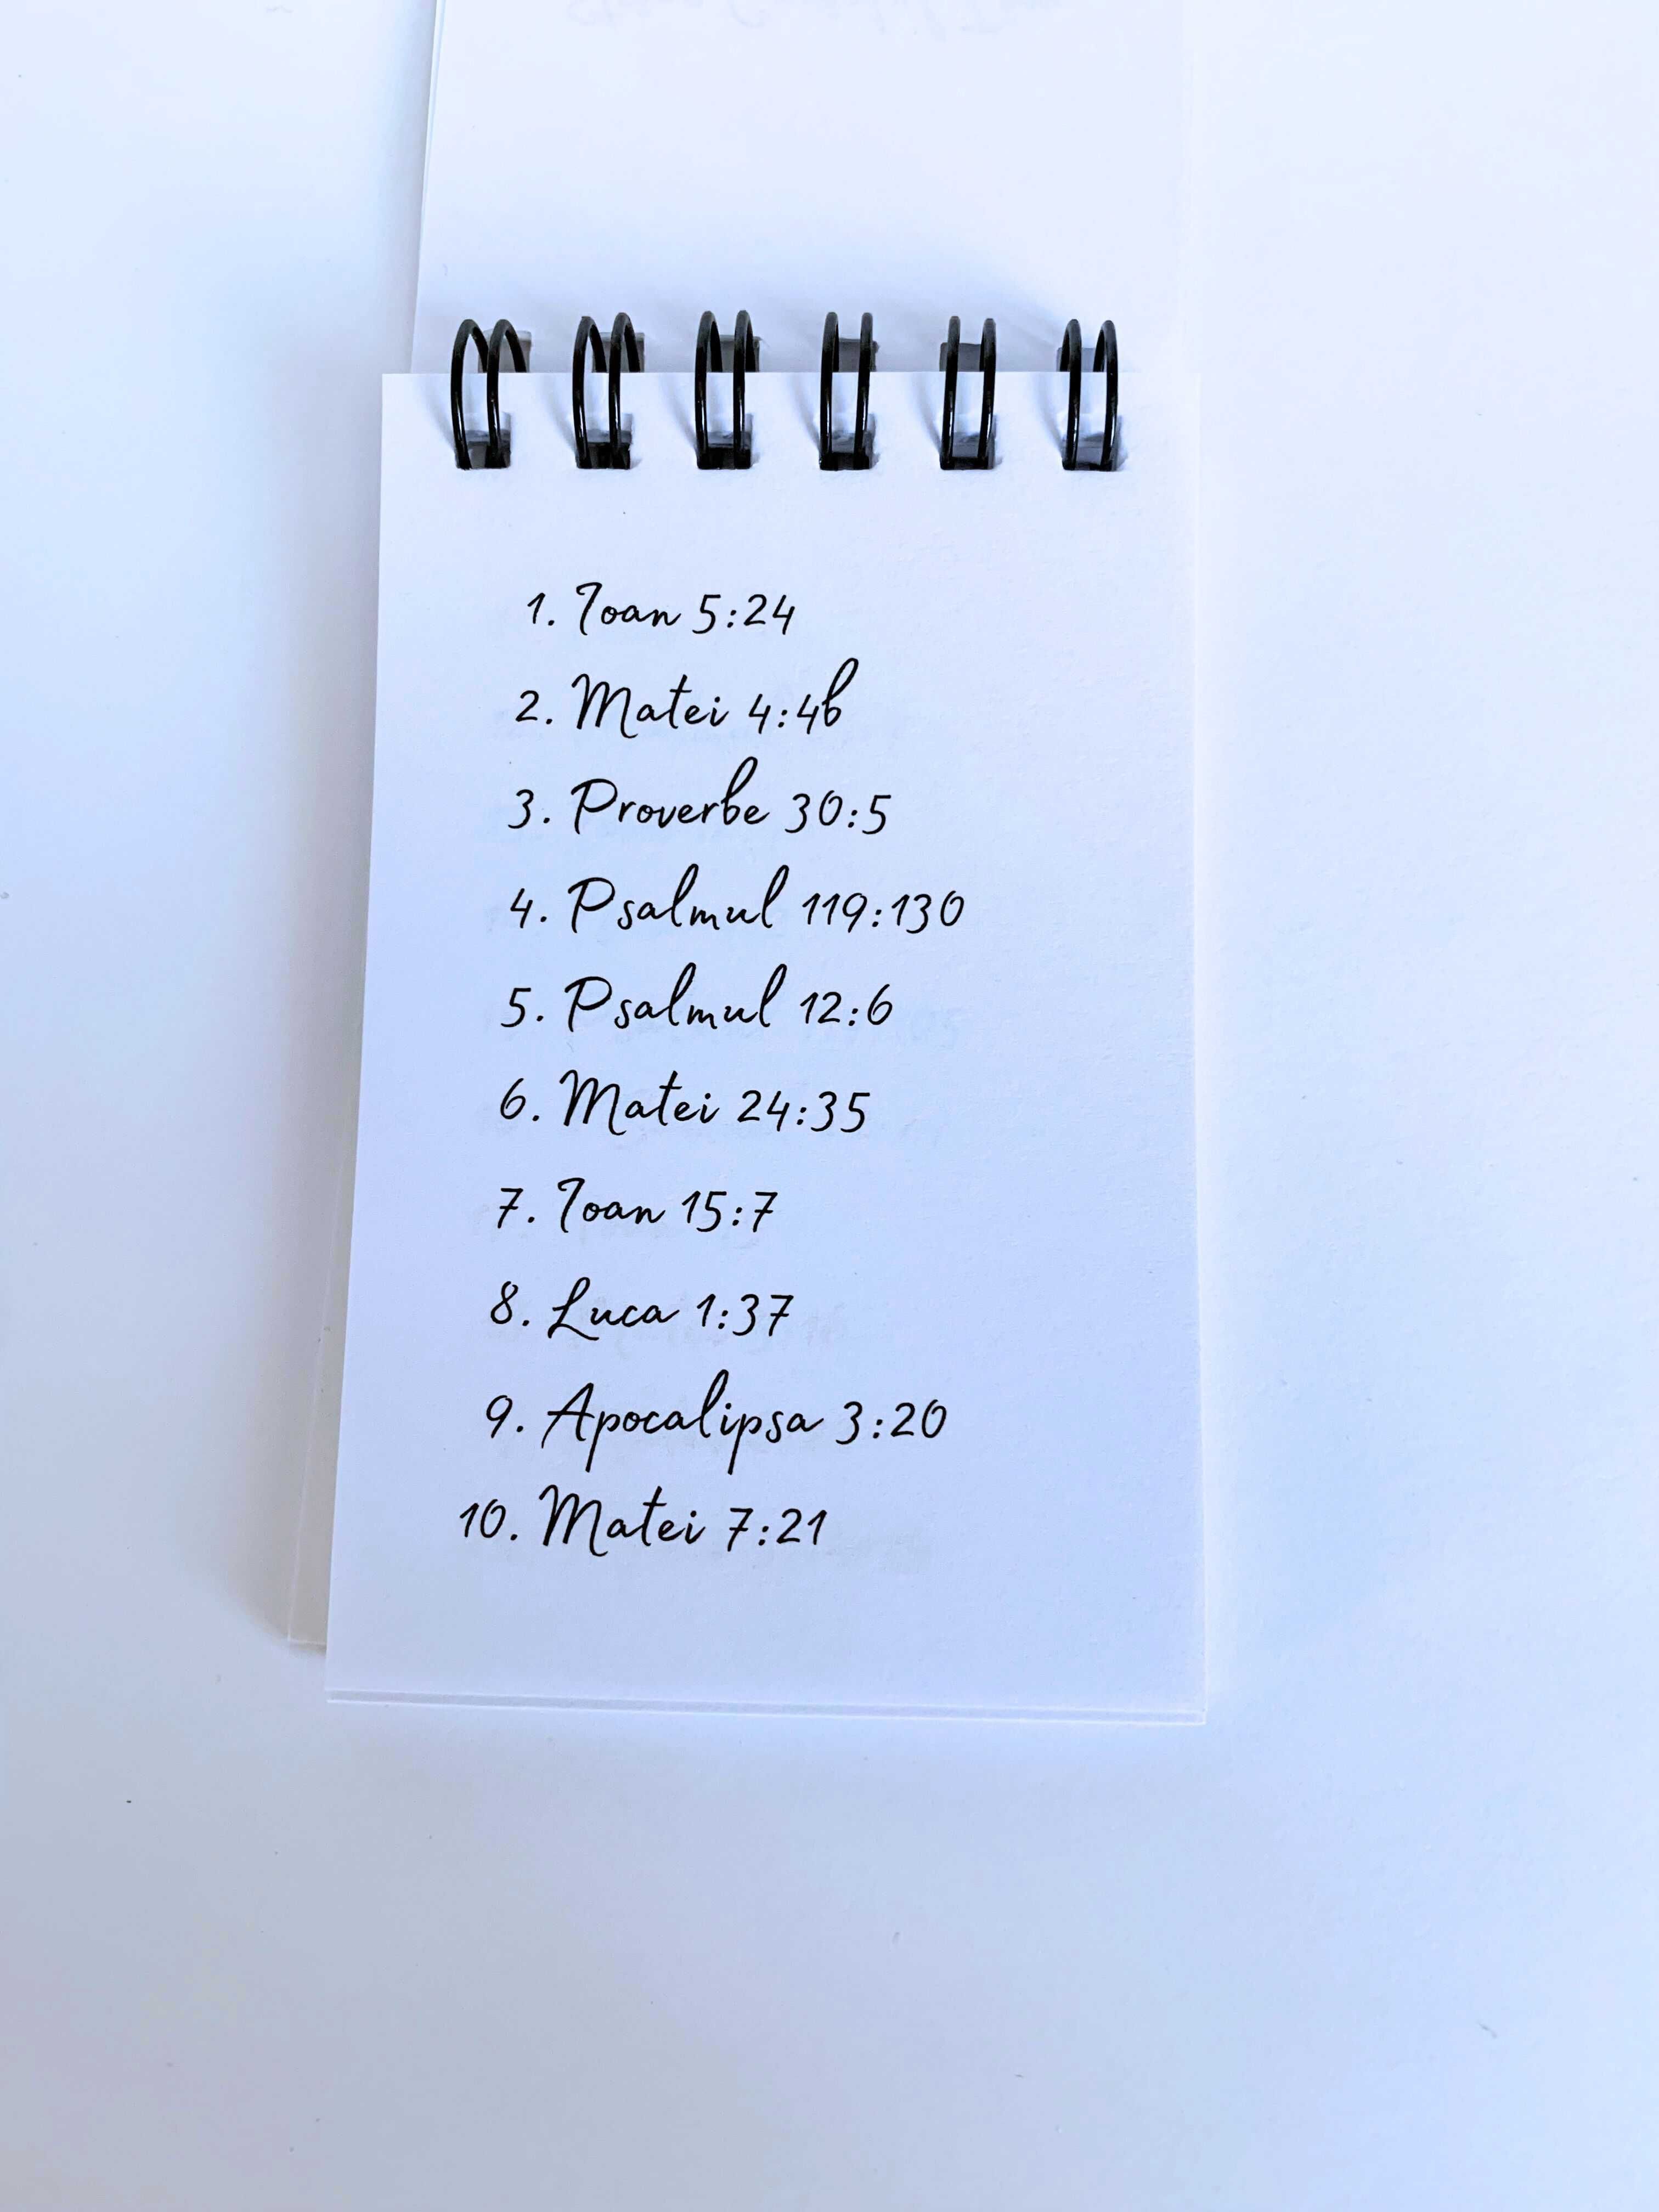 1. Ioan 5:24
2. Matei 4:4b
3. Proverbe 30:5
4. Psalmul 119:130
5. Psalmul 12:6
6. Matei 24:35
7. Ioan 15:7
8. Luca 1:37
9. Apocalipsa 3:20
10. Matei 7:21